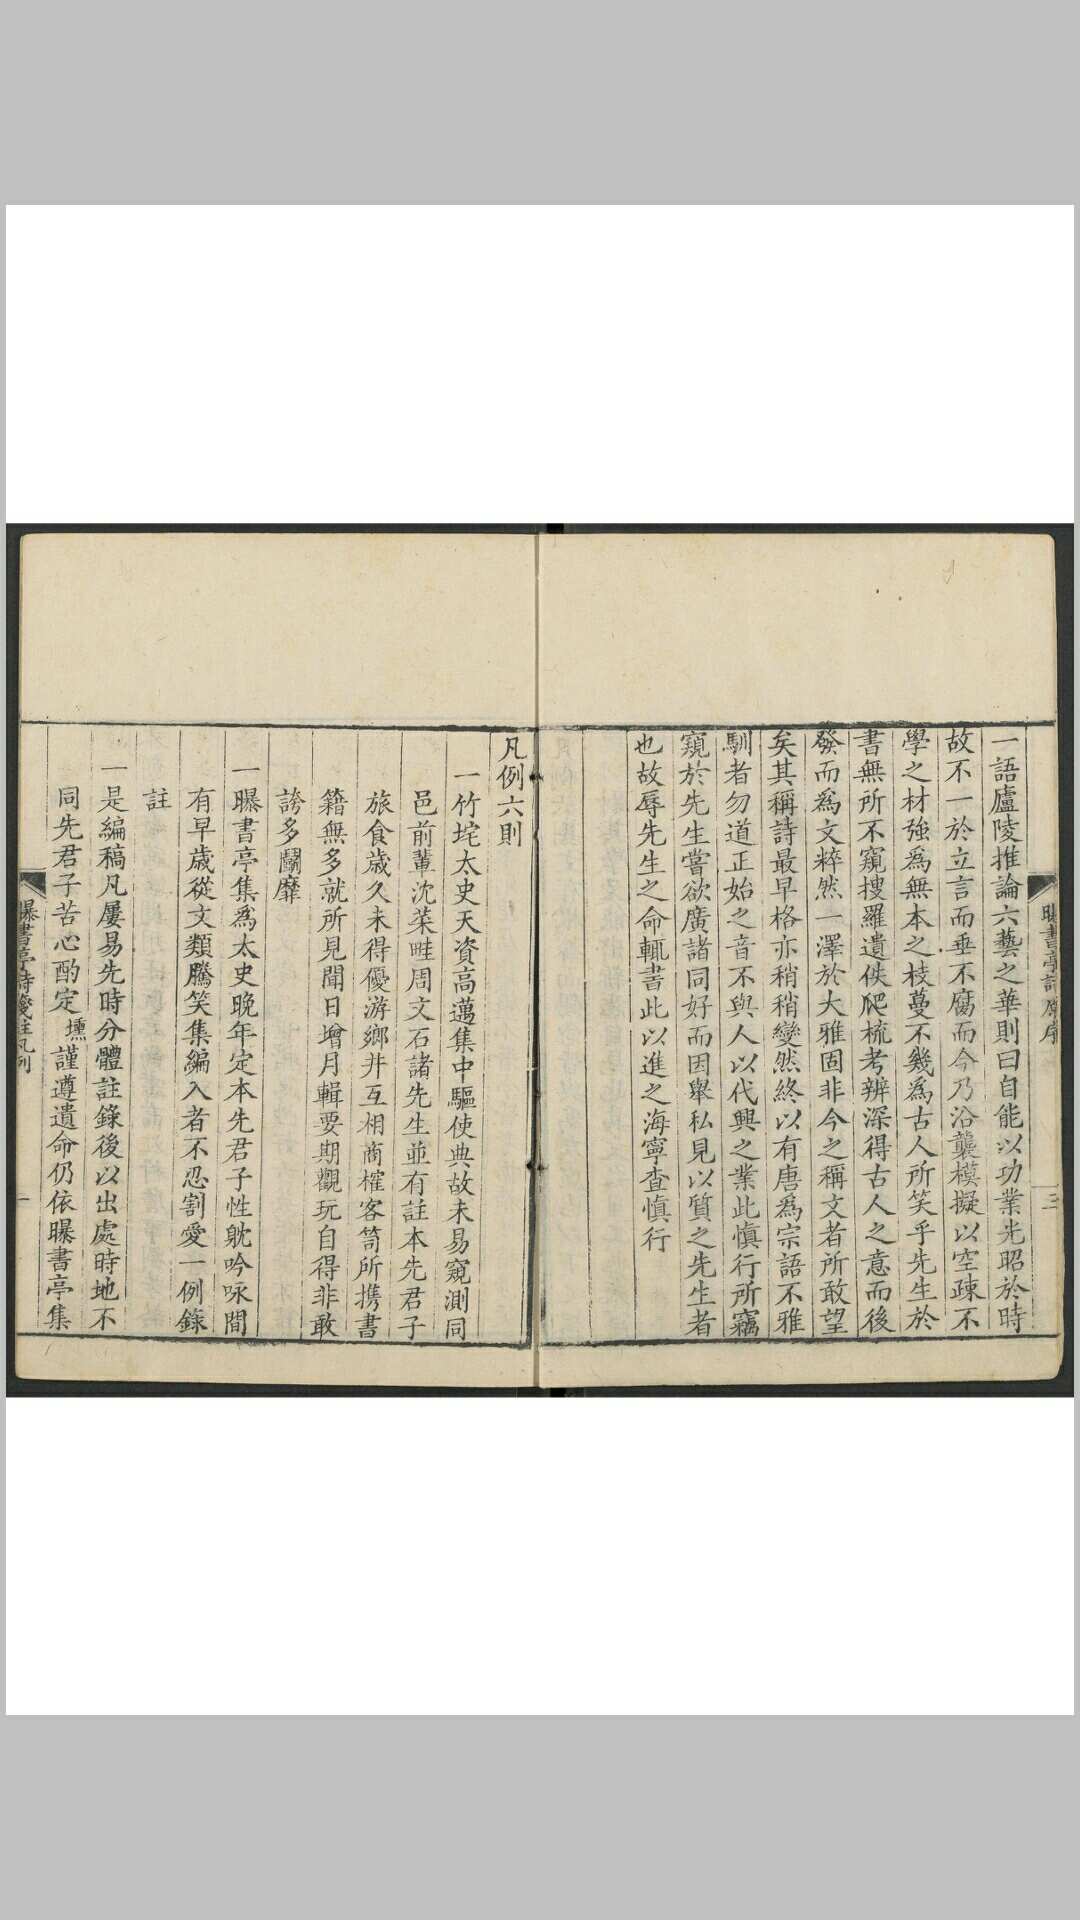 一語廬陵推論六藝之華則曰自能以功業光昭於時
故不一於立言而垂不腐而今乃沿襲模擬以空疎不
學之材強為無本之枝蔓不幾為古人所笑乎先生於
書無所不窺搜羅遺佚爬梳考辨深得古人之意而後
發而為文粹然一澤於大雅固非今之稱文者所敢望
矣其稱詩最早格亦稍稍變然終以有唐為宗語不雅
馴者勿道正始之音不與人以代興之業此慎行所竊
窺於先生嘗欲廣諸同好而因舉私見以質之先生者
也故辱先生之命輒書此以進之海寧查慎行
凡例六則
一竹垞太史天資高邁集中驅使典故未易窺測同
邑前輩沈菜畦周文石諸先生並有註本先君子
旅食歲久未得優游鄉井互相商榷客笥所攜書
籍無多就所見聞日增月輯要期觀玩自得非敢
誇多鬭靡
一曝書亭集為太史晚年定本先君子性躭吟咏間
有早歲從文類騰笑集編入者不忍割愛一例錄
註
一是編稿凡屢易先時分體註錄後以出處時地不
同先君子苦心酌定壎謹遵遺命仍依曝書亭集
曝書亭詩箋註凡例
一